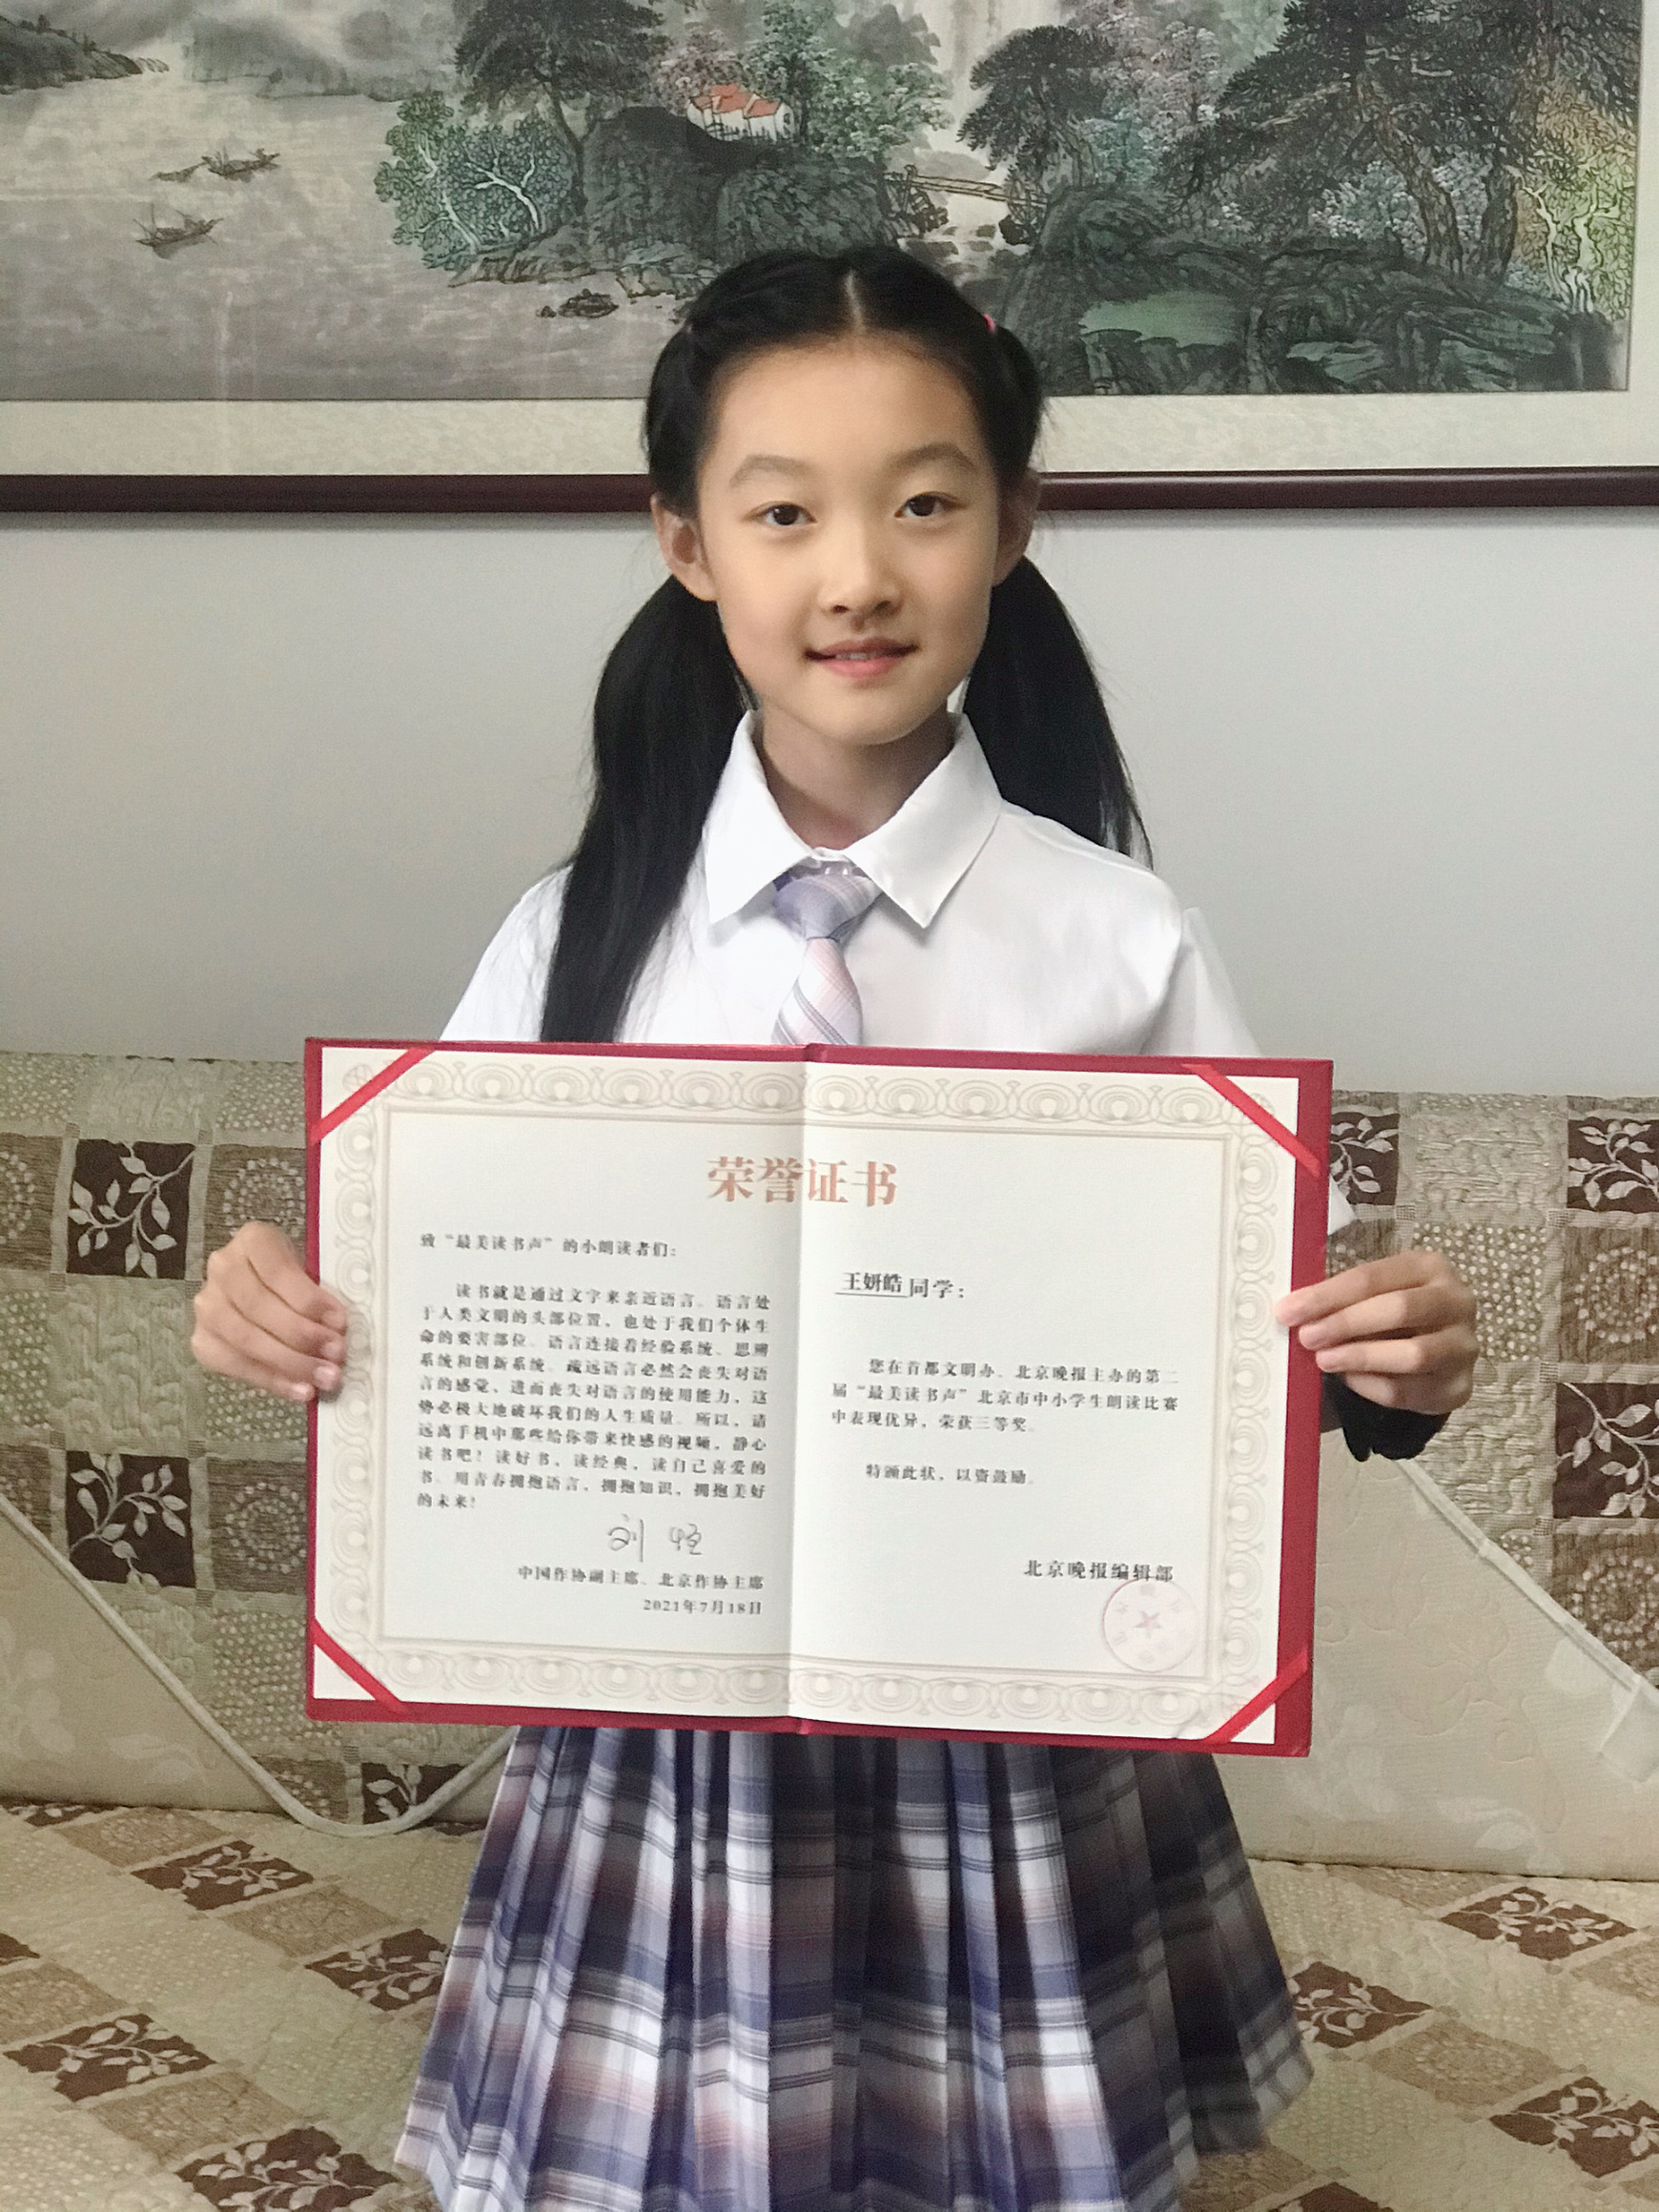 荣誉证书
致“最美读书声”的小朗读者们：
读书就是通过文字来亲近语言。语言处
于人类文明的头部位置，也处于我们个体生
命的要害部位。语言连接着经验系统、思辨
系统和创新系统。疏远语言必然会丧失对语
言的感觉，进而丧失对语言的使用能力，这
势必极大地破坏我们的人生质量。所以，请
远离手机中那些给你带来快感的视频，静心
读书吧！读好书，读经典，读自己喜爱的
书。用青春拥抱语言，拥抱知识，拥抱美好
的未来！
刘恒
中国作协副主席、北京作协主席
2021年7月18日
王妍皓同学：
您在首都文明办、北京晚报主办的第二
届“最美读书声”北京市中小学生朗读比赛
中表现优异，荣获三等奖。
特颁此状，以资鼓励。
北京晚报编辑部